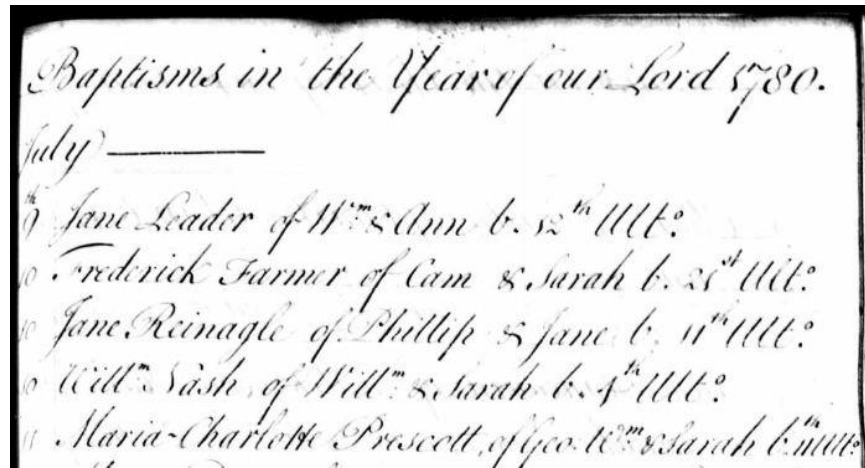 Baptisms in the Year of our Lord 1780.
July
9th Jane Leader of Wm & Ann b. 12th Ulto.
10 Frederick Farmer of Cam & Sarah b. 21st Ulto.
10 Jane Reinagle of Phillip & Jane b. 11th Ulto.
10 Willm Nash of Willm & Sarah b. 4th Ulto.
11 Maria-Charlotte Prescott, of Geo. Wm & Sarah b. 11th Ulto.